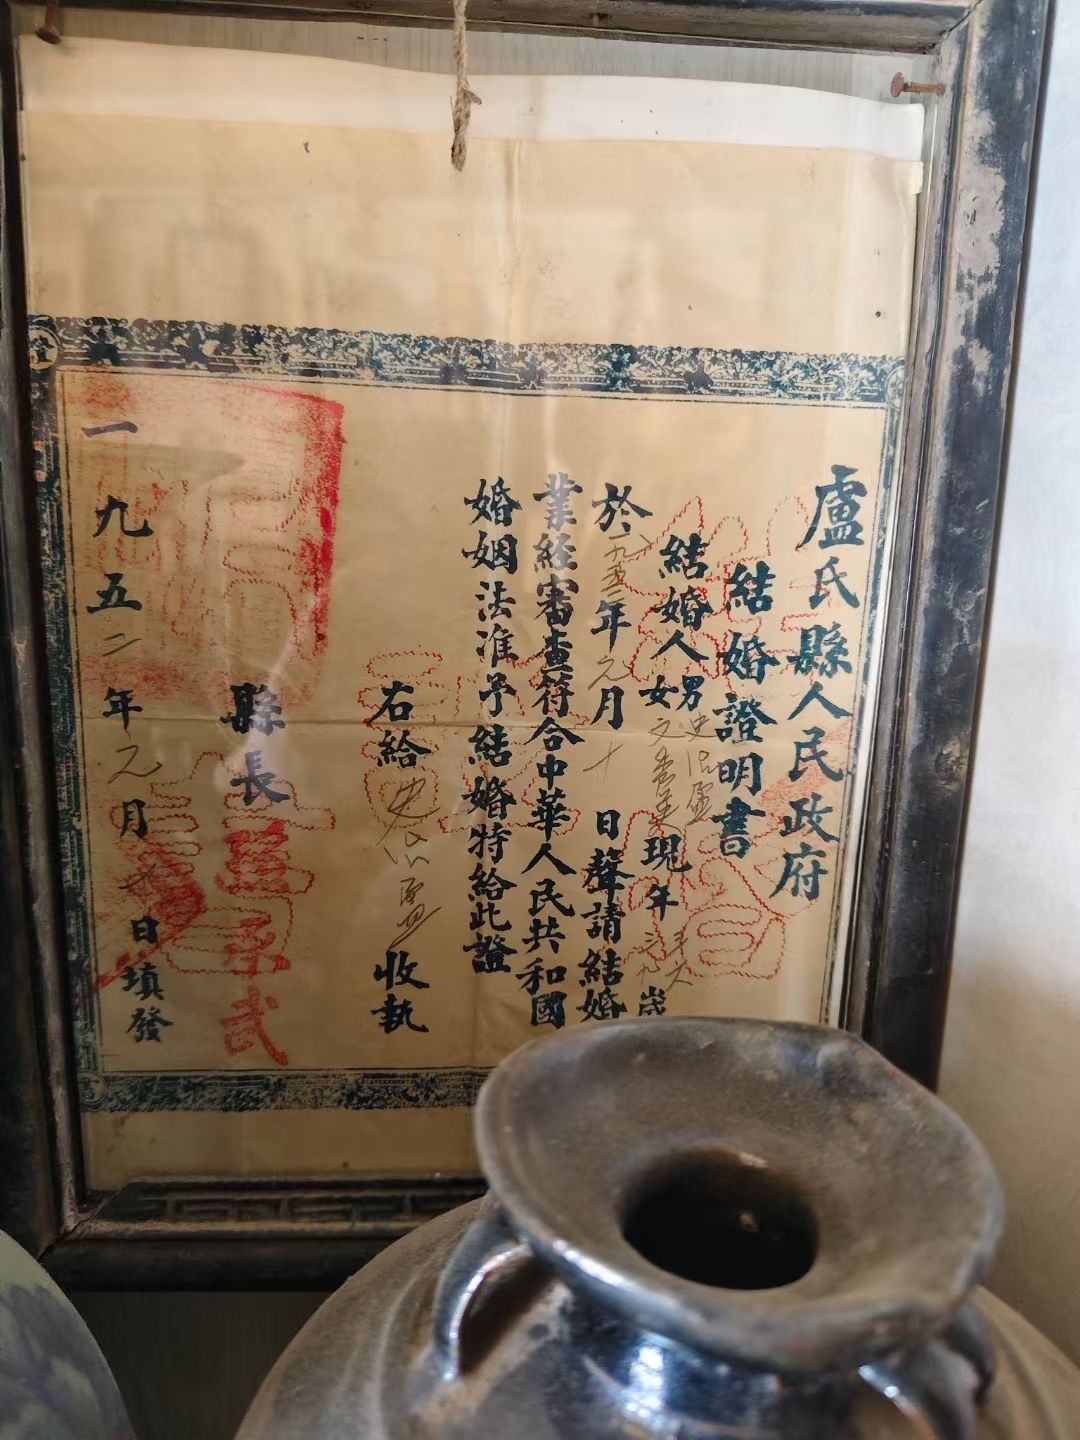 盧氏縣人民政府
結婚證明書
結婚人男史
女文香
現年歲
於一九五二年元月十日聲請結婚
業経審查符合中華人民共和國
婚姻法准予結婚特給此證
右給史收執
縣長
一九五二年元月十日填發